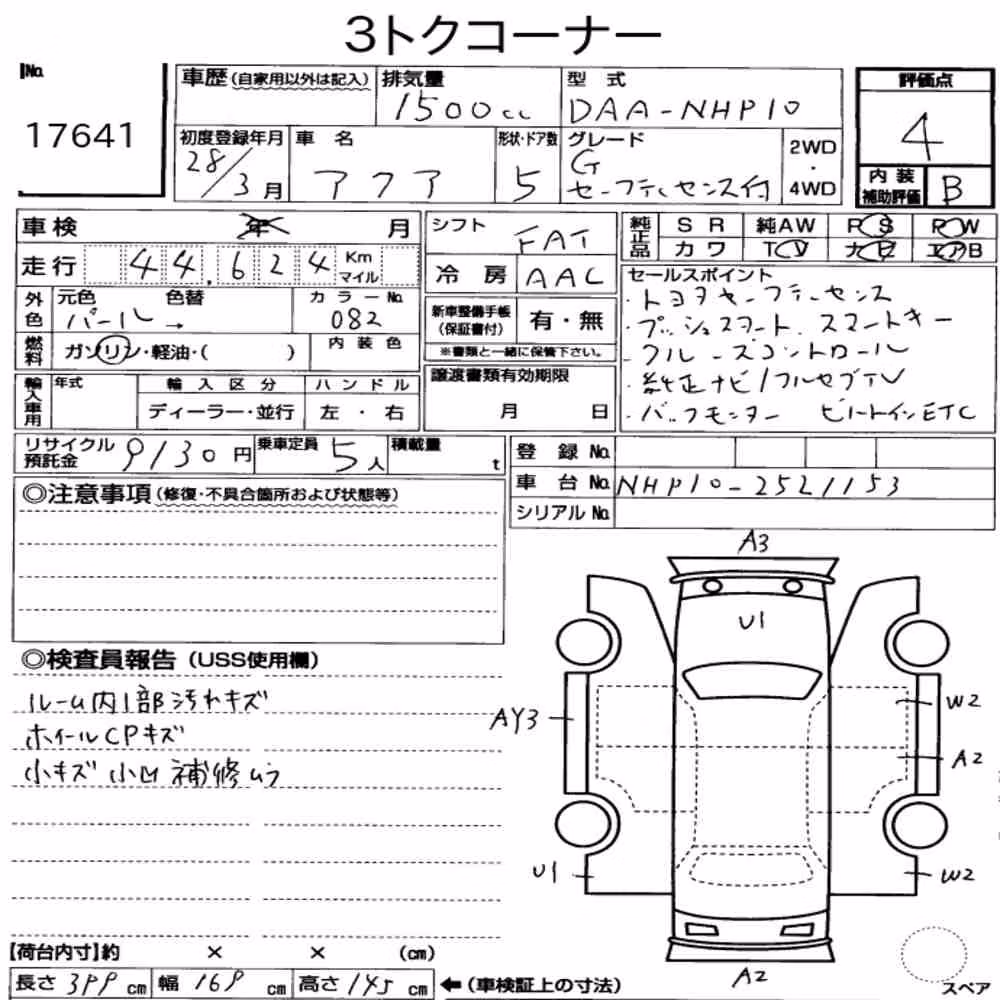 3トクコーナー
No.
17641
車歴(自家用以外は記入)
排気量
1500cc
型式
DAA-NHP10
評価点
4
内装
補助評価
B
初度登録年月
28/3月
車名
アクア
形状・ドア数
5
グレード
G
セーフティセンス付
2WD
・
4WD
車検 年 月
走行 44,624 Km
マイル
外色
元色 色替
パール→
カラーNo.
082
燃料
ガソリン・軽油・( )
内装色
輸入車用
年式
輸入区分
ディーラー・並行
ハンドル
左・右
シフト
FAT
冷房
AAC
新車整備手帳
(保証書付)
有・無
※書類と一緒に保管下さい。
譲渡書類有効期限
月 日
純正品
SR 純AW PS PW
カワ TV ナビ エアB
セールスポイント
・トヨタセーフティーセンス
・プッシュスタート、スマートキー
・クルーズコントロール
・純正ナビ/フルセグTV
・バックモニター ビルトインETC
リサイクル
預託金
9130円
乗車定員
5人
積載量
t
登録No.
車台No. NHP10-2521153
シリアルNo.
◎注意事項(修復・不具合箇所および状態等)
◎検査員報告(USS使用欄)
ルーム内1部汚れキズ
ホイールCPキズ
小キズ 小凹 補修ムラ
A3
U1
AY3
W2
A2
U1
W2
A2
スペア
【荷台内寸】約 × × (cm)
長さ 399 cm 幅 169 cm 高さ 145 cm ←(車検証上の寸法)